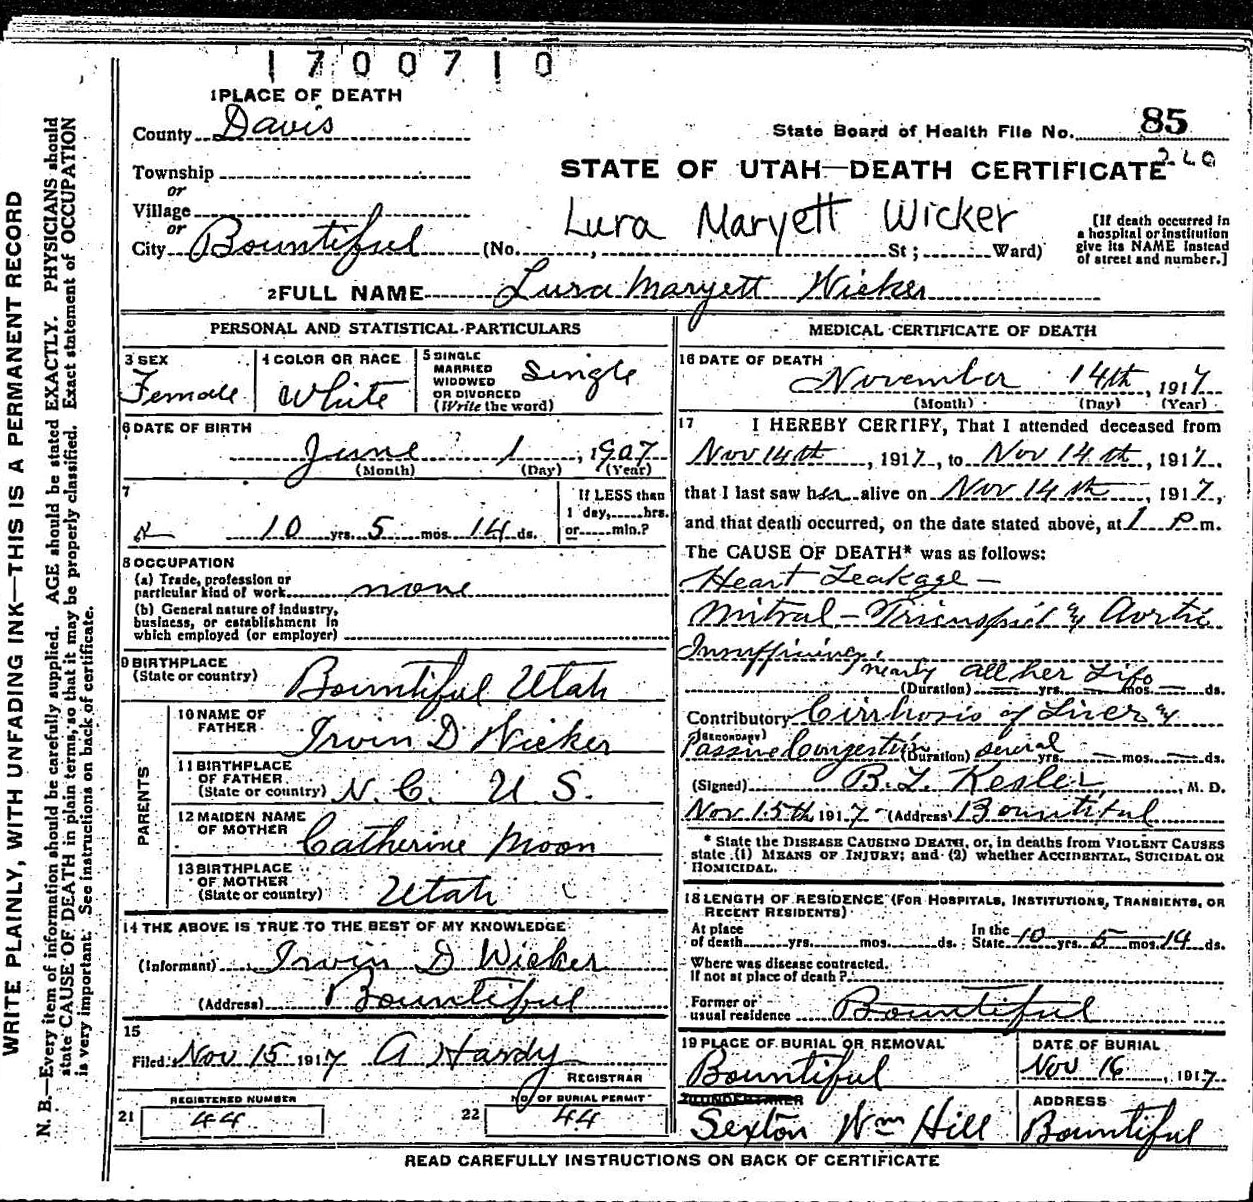 1700710
1 PLACE OF DEATH
County Davis
State Board of Health File No. 85
Township
or
STATE OF UTAH—DEATH CERTIFICATE 260
Village
or
Lura Maryett Wicker
City Bountiful (No. , St ; Ward)
[If death occurred in
a hospital or institution
give its NAME instead
of street and number.]
2 FULL NAME Lura Maryett Wicker
PERSONAL AND STATISTICAL PARTICULARS
3 SEX
Female
4 COLOR OR RACE
White
5 SINGLE
MARRIED
WIDOWED
OR DIVORCED
(Write the word)
Single
6 DATE OF BIRTH
June 1, 1907
(Month) (Day) (Year)
7
10 yrs. 5 mos. 14 ds.
If LESS than
1 day, hrs.
or min.?
8 OCCUPATION
(a) Trade, profession or
particular kind of work none
(b) General nature of industry,
business, or establishment in
which employed (or employer)
9 BIRTHPLACE
(State or country) Bountiful Utah
PARENTS
10 NAME OF
FATHER Irvin D Wicker
11 BIRTHPLACE
OF FATHER
(State or country) N. C. U S.
12 MAIDEN NAME
OF MOTHER Catherine Moon
13 BIRTHPLACE
OF MOTHER
(State or country) Utah
14 THE ABOVE IS TRUE TO THE BEST OF MY KNOWLEDGE
(Informant) Irvin D Wicker
(Address) Bountiful
15
Filed Nov 15 1917 A Hardy
REGISTRAR
REGISTERED NUMBER
21 44
NO. OF BURIAL PERMIT
22 44
MEDICAL CERTIFICATE OF DEATH
16 DATE OF DEATH
November 14th, 1917
(Month) (Day) (Year)
17 I HEREBY CERTIFY, That I attended deceased from
Nov 14th, 1917, to Nov 14th, 1917,
that I last saw her alive on Nov 14th, 1917,
and that death occurred, on the date stated above, at 1 P m.
The CAUSE OF DEATH* was as follows:
Heart Leakage —
Mitral — Tricuspid & Aortic
Insufficiency, nearly all her Life
(Duration) yrs. mos. ds.
Contributory Cirrhosis of Liver &
(SECONDARY)
Passive Congestion (Duration) several yrs. mos. ds.
(Signed) B. L. Kesler, M. D.
Nov 15th 1917 (Address) Bountiful
* State the DISEASE CAUSING DEATH, or, in deaths from VIOLENT CAUSES
state (1) MEANS OF INJURY; and (2) whether ACCIDENTAL, SUICIDAL OR
HOMICIDAL.
18 LENGTH OF RESIDENCE (FOR HOSPITALS, INSTITUTIONS, TRANSIENTS, OR
RECENT RESIDENTS)
At place
of death yrs. mos. ds.
In the
State 10 yrs. 5 mos. 14 ds.
Where was disease contracted.
If not at place of death?
Former or
usual residence Bountiful
19 PLACE OF BURIAL OR REMOVAL
Bountiful
DATE OF BURIAL
Nov 16, 1917
20 UNDERTAKER
Sexton Wm Hill
ADDRESS
Bountiful
READ CAREFULLY INSTRUCTIONS ON BACK OF CERTIFICATE
WRITE PLAINLY, WITH UNFADING INK—THIS IS A PERMANENT RECORD
N. B.—Every item of information should be carefully supplied. AGE should be stated EXACTLY. PHYSICIANS should
state CAUSE OF DEATH in plain terms, so that it may be properly classified. Exact statement of OCCUPATION
is very important. See instructions on back of certificate.